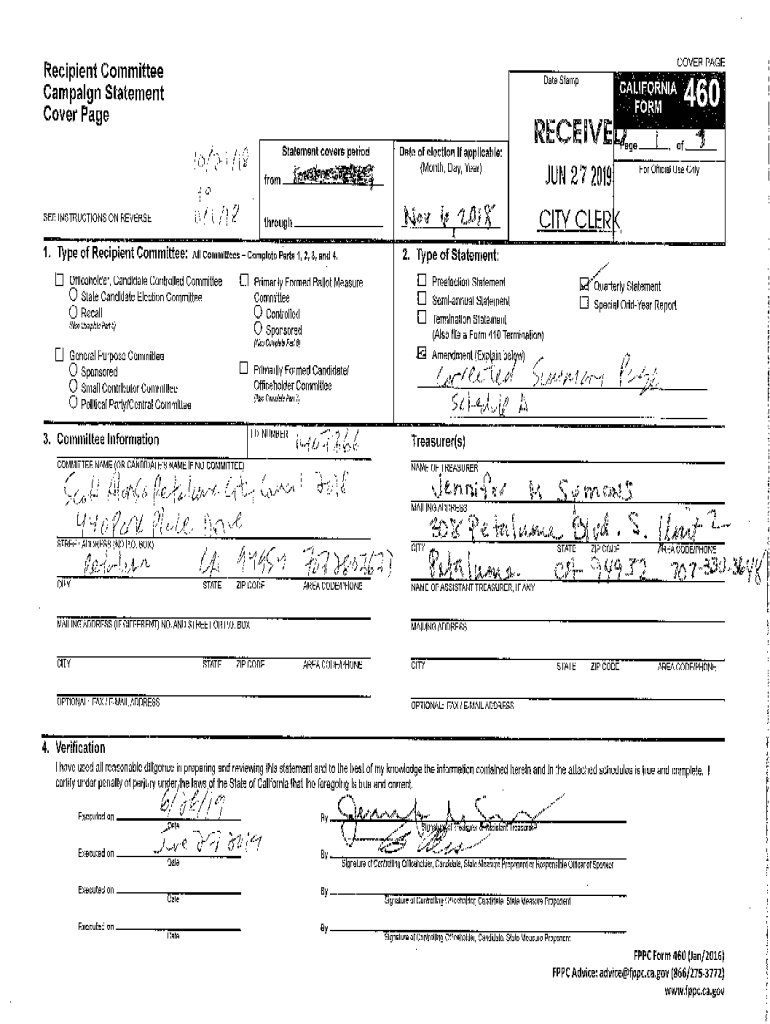 COVER PAGE
Recipient Committee
Campaign Statement
Cover Page
Date Stamp
CALIFORNIA
FORM
460
RECEIVED
JUN 27 2019
CITY CLERK
Page 1 of
For Official Use Only
Statement covers period
from
through
10/21/18
to
Date of election if applicable:
(Month, Day, Year)
Nov 6 2018
SEE INSTRUCTIONS ON REVERSE
1. Type of Recipient Committee: All Committees – Complete Parts 1, 2, 3, and 4.
Officeholder, Candidate Controlled Committee
State Candidate Election Committee
Recall
(Also Complete Part 5)
General Purpose Committee
Sponsored
Small Contributor Committee
Political Party/Central Committee
Primarily Formed Ballot Measure
Committee
Controlled
Sponsored
(Also Complete Part 6)
Primarily Formed Candidate/
Officeholder Committee
(Also Complete Part 7)
2. Type of Statement:
Preelection Statement
Semi-annual Statement
Termination Statement
(Also file a Form 410 Termination)
Amendment (Explain below)
Quarterly Statement
Special Odd-Year Report
Corrected Summary Page
Schedule A
3. Committee Information
I.D. NUMBER
1407866
COMMITTEE NAME (OR CANDIDATE'S NAME IF NO COMMITTEE)
Scott Petaluma City Council 2018
STREET ADDRESS (NO P.O. BOX)
Petaluma CA
CITY STATE ZIP CODE AREA CODE/PHONE
MAILING ADDRESS (IF DIFFERENT) NO. AND STREET OR P.O. BOX
CITY STATE ZIP CODE AREA CODE/PHONE
OPTIONAL: FAX / E-MAIL ADDRESS
Treasurer(s)
NAME OF TREASURER
Jennifer M Symons
MAILING ADDRESS
308 Petaluma Blvd. S. Unit 2
CITY STATE ZIP CODE AREA CODE/PHONE
Petaluma CA 94952 707-330-3648
NAME OF ASSISTANT TREASURER, IF ANY
MAILING ADDRESS
CITY STATE ZIP CODE AREA CODE/PHONE
OPTIONAL: FAX / E-MAIL ADDRESS
4. Verification
I have used all reasonable diligence in preparing and reviewing this statement and to the best of my knowledge the information contained herein and in the attached schedules is true and complete. I
certify under penalty of perjury under the laws of the State of California that the foregoing is true and correct.
Executed on
Date
By
Signature of Treasurer or Assistant Treasurer
Executed on June 27 2019
Date
By
Signature of Controlling Officeholder, Candidate, State Measure Proponent or Responsible Officer of Sponsor
Executed on
Date
By
Signature of Controlling Officeholder, Candidate, State Measure Proponent
Executed on
Date
By
Signature of Controlling Officeholder, Candidate, State Measure Proponent
FPPC Form 460 (Jan/2016)
FPPC Advice: advice@fppc.ca.gov (866/275-3772)
www.fppc.ca.gov